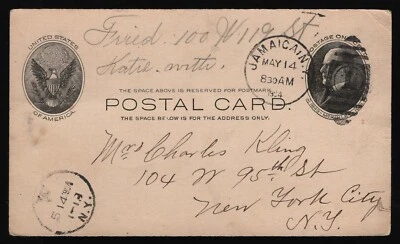 Fried: 100 W 119 St
Katie. with.
UNITED STATES
OF AMERICA
JAMAICA, N.Y.
MAY 14
830AM
1904
POSTAGE ONE
THE SPACE ABOVE IS RESERVED FOR POSTMARK.
POSTAL CARD.
THE SPACE BELOW IS FOR THE ADDRESS ONLY.
Mrs Charles Kling
104 W 95th St
New York City
N.Y.
N.Y.
5-14 04